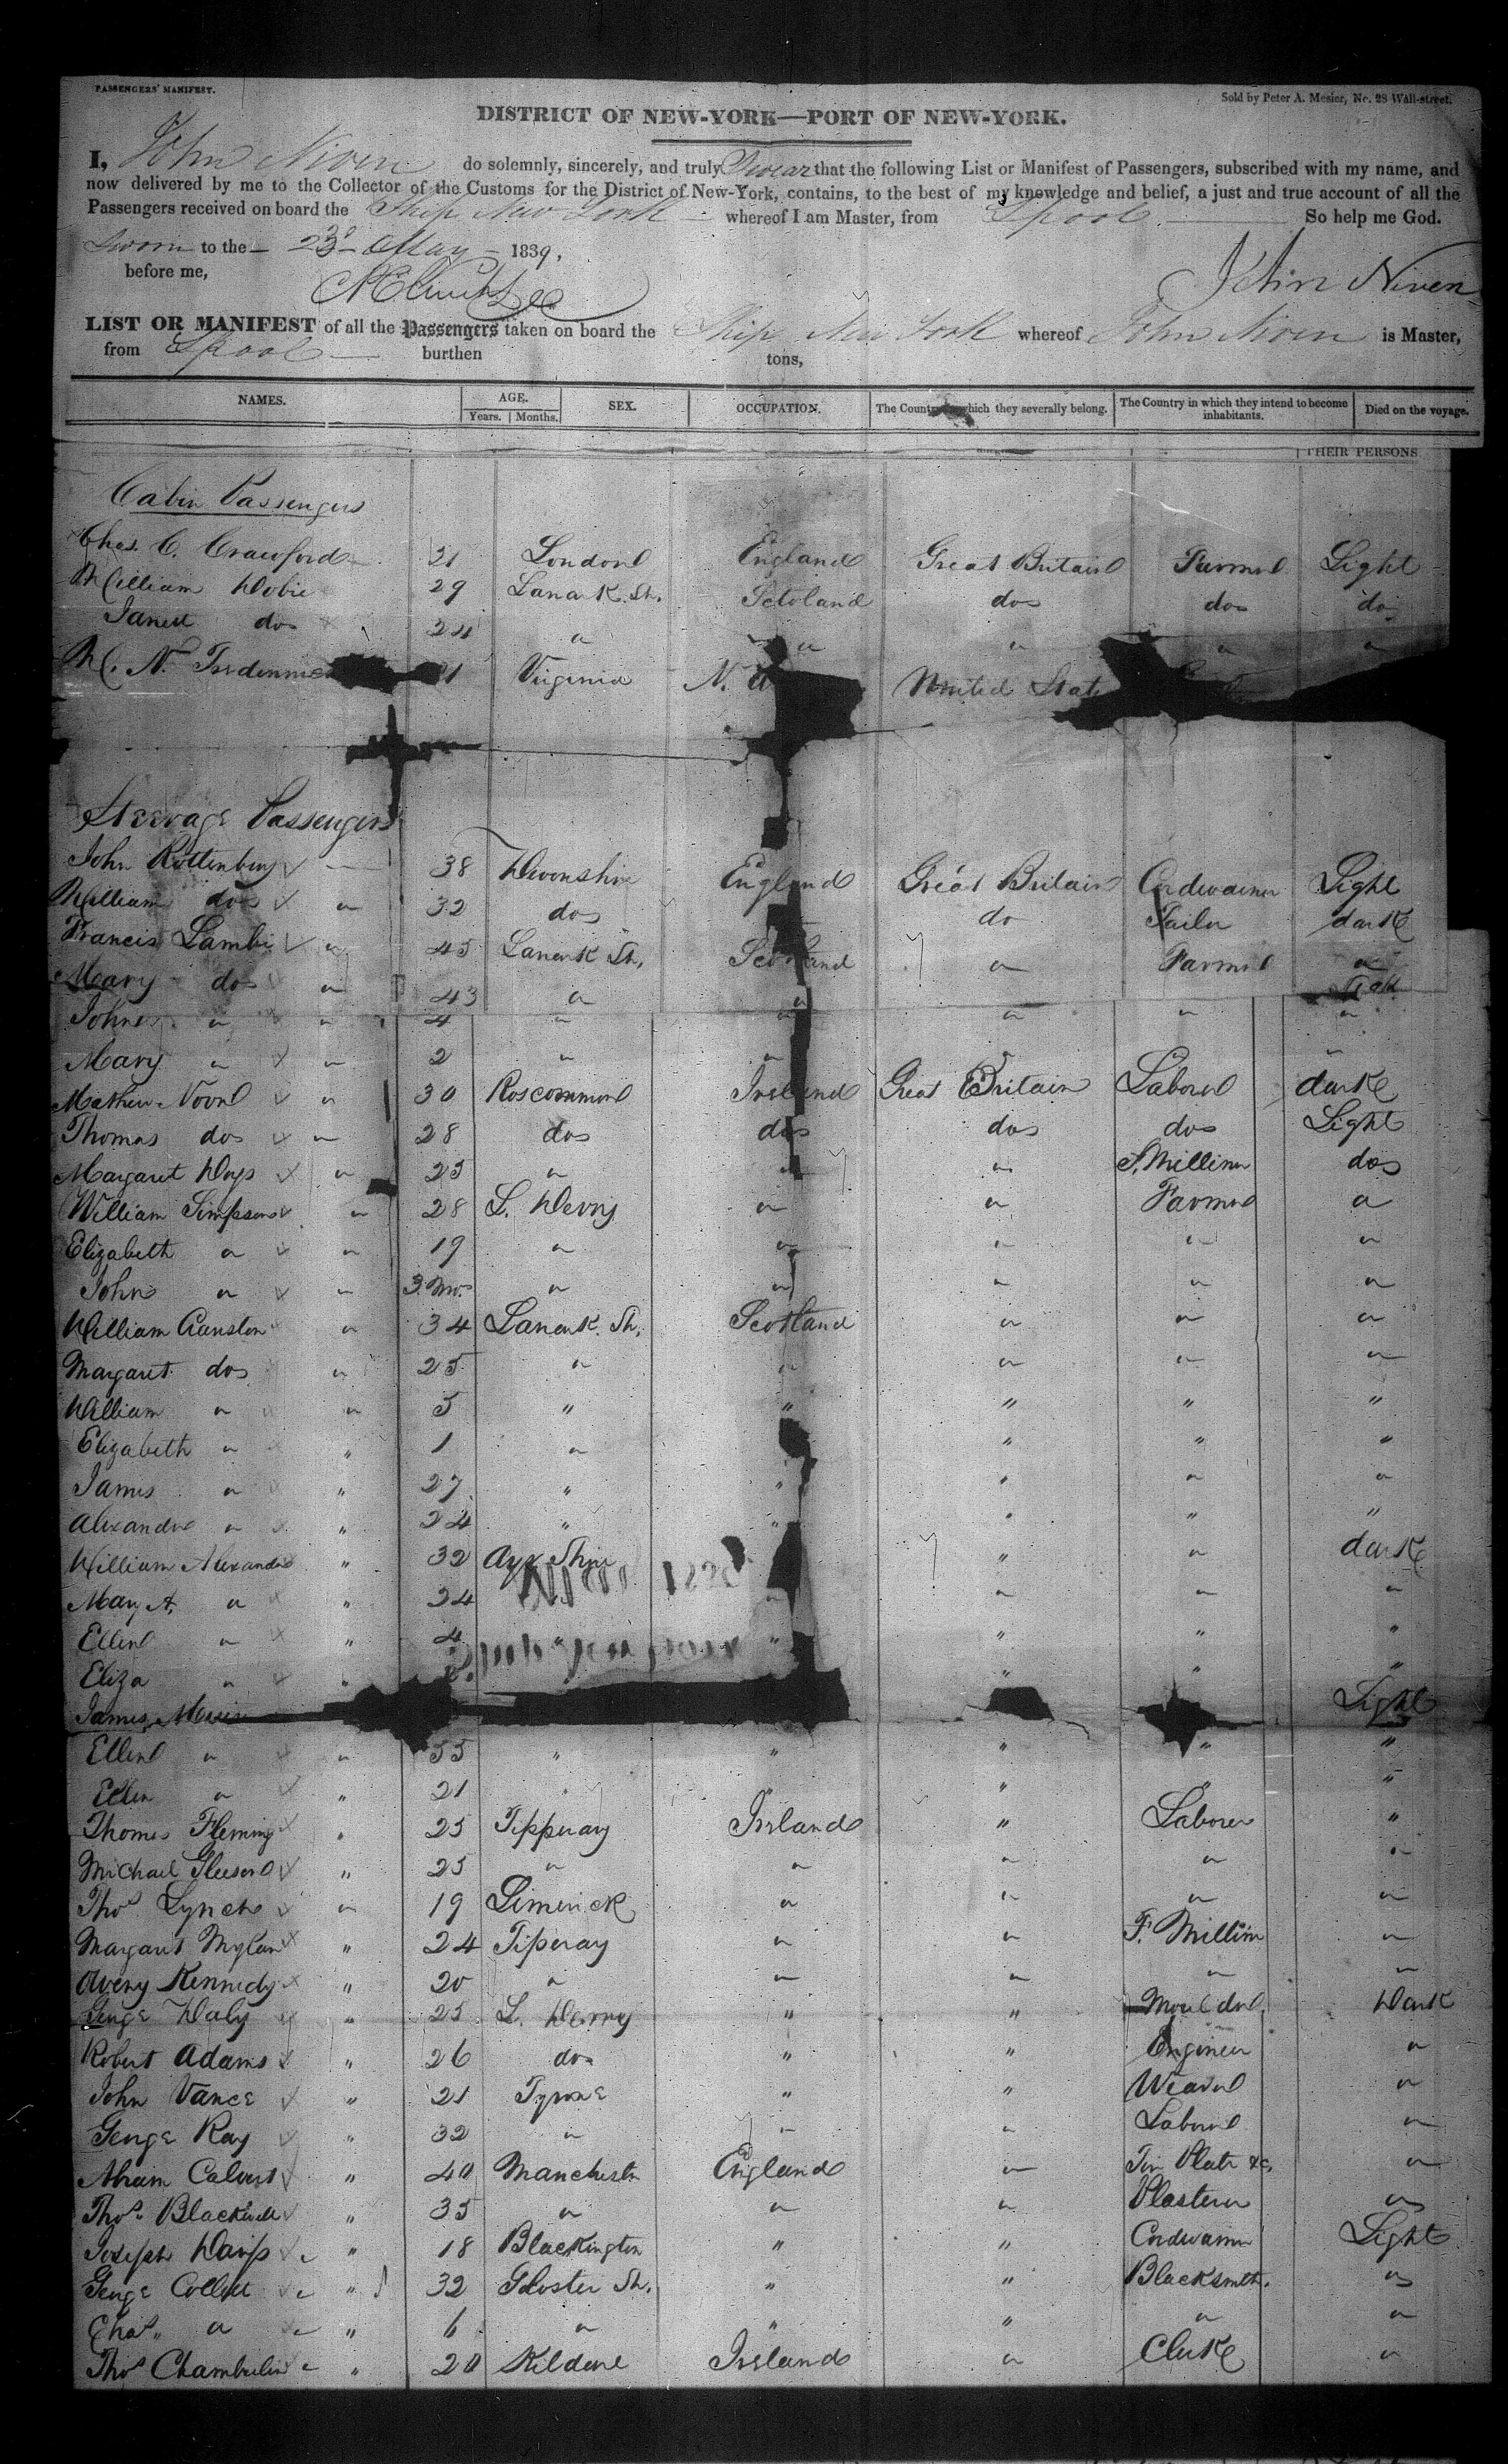 PASSENGERS' MANIFEST.
Sold by Peter A. Mesier, No. 28 Wall-street.
DISTRICT OF NEW-YORK—PORT OF NEW-YORK.
I, John Niven do solemnly, sincerely, and truly Swear that the following List or Manifest of Passengers, subscribed with my name, and
now delivered by me to the Collector of the Customs for the District of New-York, contains, to the best of my knowledge and belief, a just and true account of all the
Passengers received on board the Ship New York whereof I am Master, from Lpool So help me God.
Sworn to the 23d May 1839,
before me, John Niven
LIST OR MANIFEST of all the Passengers taken on board the Ship New York whereof John Niven is Master,
from Lpool burthen tons,
NAMES. AGE. Years. Months. SEX. OCCUPATION. The Country to which they severally belong. The Country in which they intend to become inhabitants. Died on the voyage.
THEIR PERSONS
Cabin Passengers
Chas. C. Crawford 21 London England Great Britain Farmer Light
William Dobie 29 Lanark Sh. Scotland do do do
Janett do 24 " " " " "
N. 21 Virginia N. A United Stat
Steerage Passengers
John Rottenbury 38 Devonshire England Great Britain Cordwainer Light
William do " 32 do do Tailor dark
Francis Lambie " 45 Lanark Sh. Scotland " Farmer "
Mary do " 43 " "
John " " 4 " " " " "
Mary " " 2 " " " "
Mathew Noon " 30 Roscommon Ireland Great Britain Laborer dark
Thomas do " 28 do do do do Light
Margaret " 25 " " " S. Milliner do
William Simpson " 28 L. Derry " " Farmer "
Elizabeth " " 19 " " " " "
John " " 3 Mo. " " " " "
William " 34 Lanark Sh. Scotland " " "
Margaret do " 25 " " " " "
William " " 5 " " " " "
Elizabeth " " 1 " " " "
James " " 27 " " " " "
Alexander " " 24 " " " " "
William Alexander " 32 Ayr Shire " " dark
Mary A. " " 24 " " " "
Ellen " " 4 " " " " "
Eliza " " " " "
James Light
Ellen " " 55 " " " " "
Ellen " " 21 " " " " "
Thomas Fleming " 25 Tipperay Ireland " Laborer "
Michael Gleeson " 25 " " " " "
Thos Lynch " 19 Limerick " " " "
Margaret " 24 Tiperay " " F. Milliner "
Kennedy " 20 " " " " "
George Daly " 25 L. Derry " " Moulder Dark
Robert Adams " 26 do " " Engineer "
John Vance " 21 Tyrone " " Weaver "
George Ray " 32 " " " Laborer "
Abram Calvert " 40 Manchester England " Tin Plate &c. "
Thos. Blackwell " 35 " " " Plasterer "
Joseph " 18 Blackington " " Cordwainer Light
George Collett " 32 Gloster Sh. " " Blacksmith. "
Chas. " " 6 " " " " "
Thos Chamberlin " 20 Kildare Ireland " Clerk "